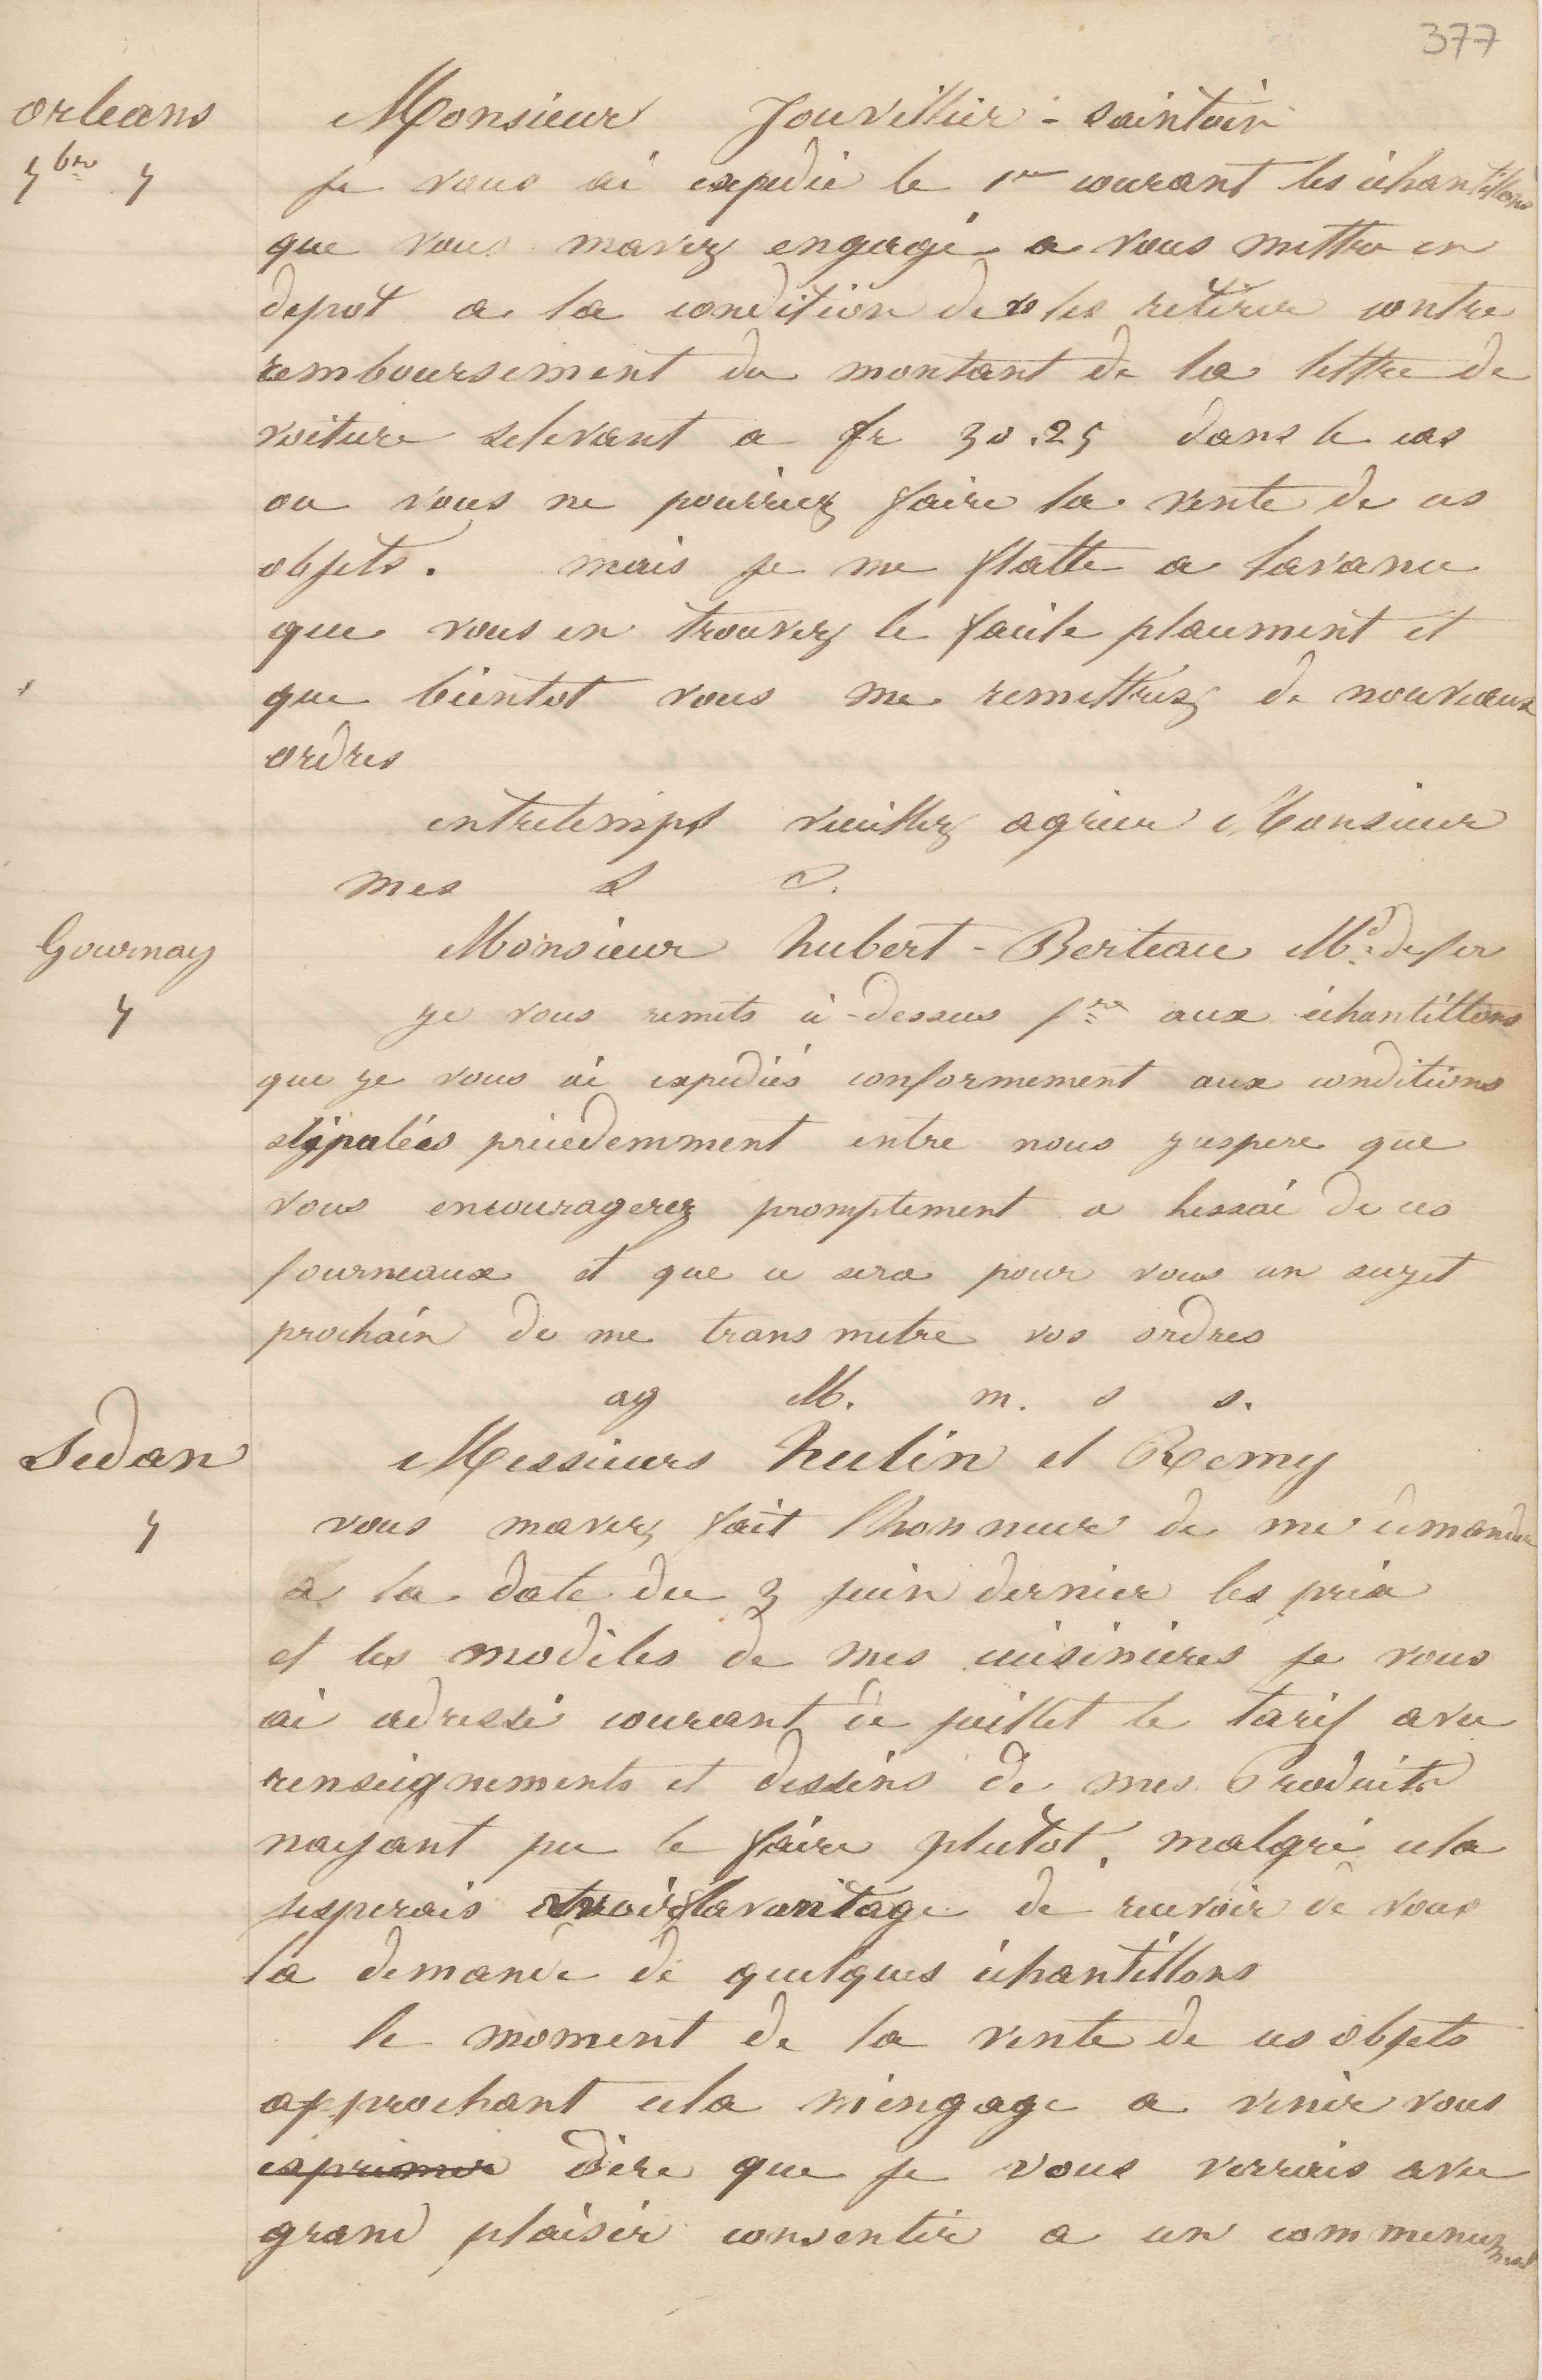 377
orleans
Monsieur Jouvellier - saintoin
7bre 7
je vous ai expedie le 1er courant les échantillons
que vous mavez engagé a vous mettre en
depot a la condition de les retirer contre
remboursement du montant de la lettre de
voiture selevant a fr 30.25 dans le cas
ou vous ne pourriez faire la vente de ces
objets. mais je me flatte a lavance
que vous en trouvez le facile placement et
que bientot vous me remettriez de nouveaux
ordres
entretemps veuillez agréer Monsieur
mes S S.
Gournay
Monsieur hubert - Berteau Md de fer
7
je vous remets ci-dessus fre aux échantillons
que je vous ai expediés conformement aux conditions
stipulées précedemment entre nous jespere que
vous encouragerez promptement a lessai de ces
fourneaux et que ce sera pour vous un sujet
prochain de me transmetre vos ordres
ag M. m. s s.
Sedan
Messieurs hulin et Remy
7
vous mavez fait lhonneur de me demander
a la date du 3 juin dernier les prix
et les modèles de mes cuisinieres je vous
ai adressé courant de juillet le tarif avec
renseignements et dessins de mes Produits
nayant pu le faire plutot, malgré cela
jesperais lavantage de recevoir de vous
la demande de quelques échantillons
le moment de la vente de ces objets
approchant cela m'engage a venir vous
exprimer dire que je vous verrais avec
grand plaisir consentir a un commencement